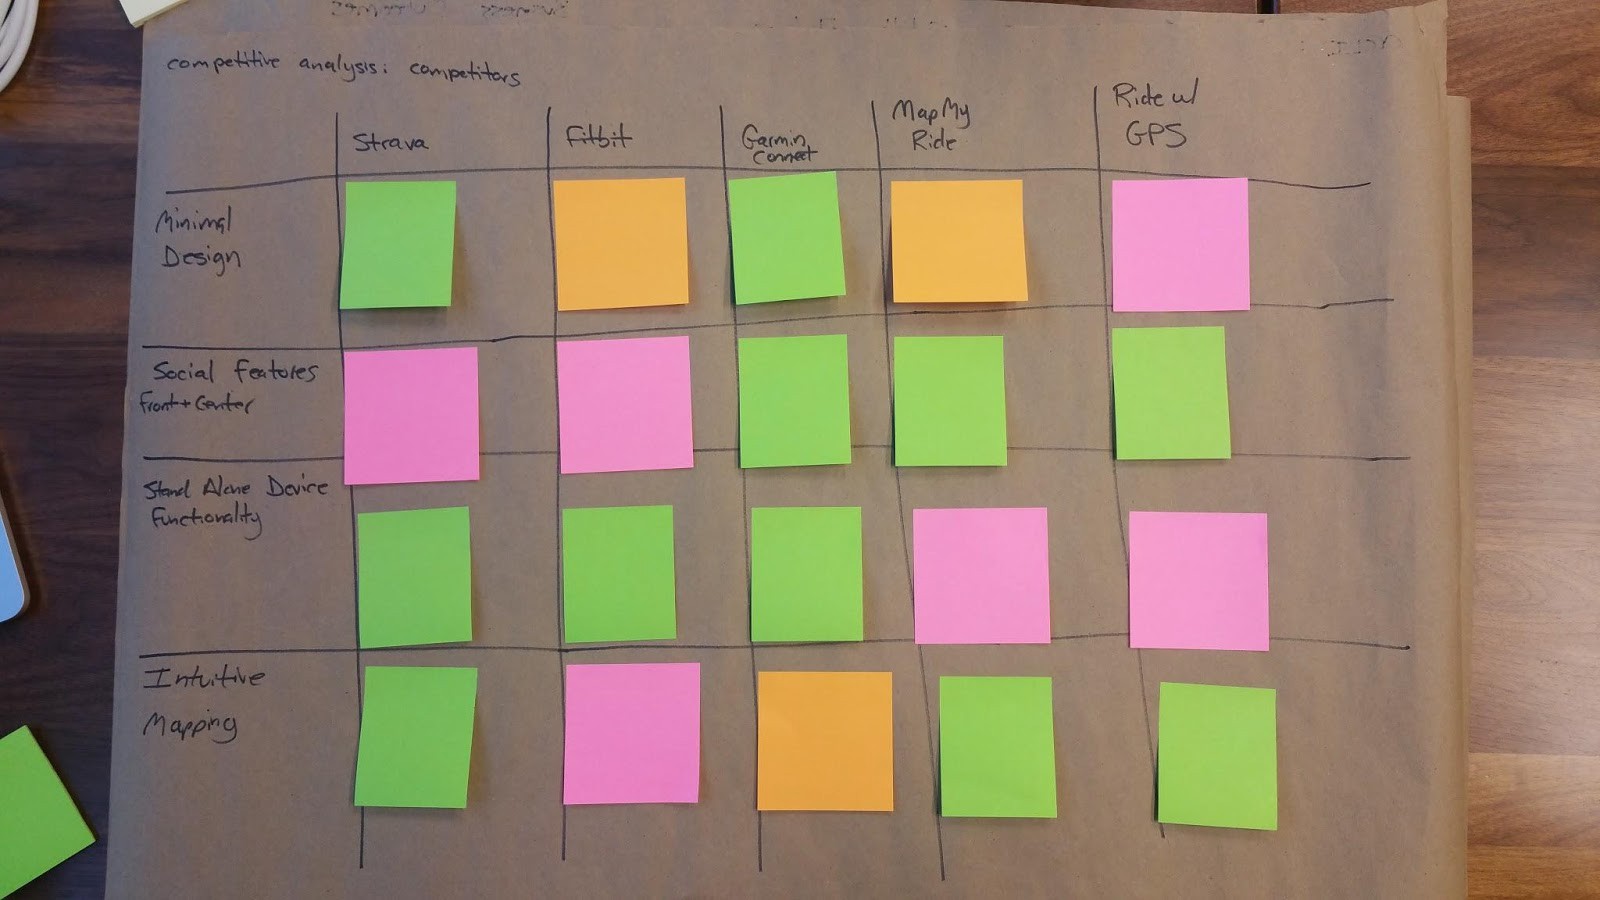 competitive analysis: competitors
Strava
Fitbit
Garmin
Connect
MapMy
Ride
Ride w/
GPS
Minimal
Design
Social Features
Front + Center
Stand Alone Device
Functionality
Intuitive
Mapping